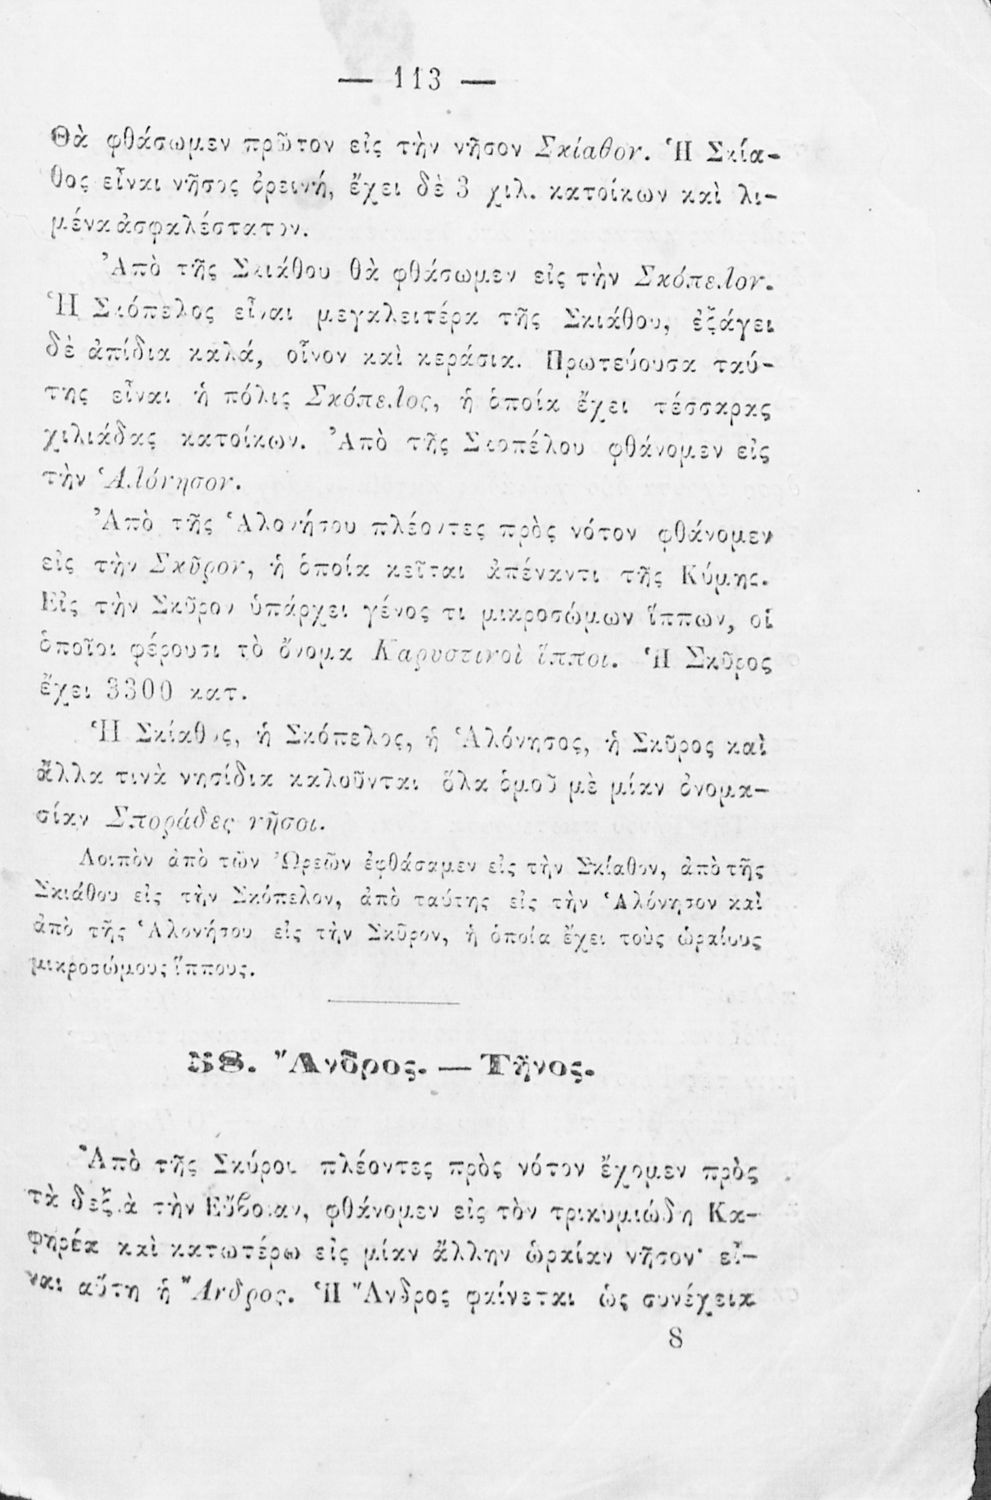 — 113 —
Θὰ φθάσωμεν πρῶτον εἰς τὴν νῆσον Σκίαθον. Ἡ Σκία-
θος εἶναι νῆσος ὀρεινή, ἔχει δὲ 3 χιλ. κατοίκων καὶ λι-
μένα ἀσφαλέστατον.
Ἀπὸ τῆς Σκιάθου θὰ φθάσωμεν εἰς τὴν Σκόπελον.
Ἡ Σκόπελος εἶναι μεγαλειτέρα τῆς Σκιάθου, ἐξάγει
δὲ ἀπίδια καλά, οἶνον καὶ κεράσια. Πρωτεύουσα ταύ-
της εἶναι ἡ πόλις Σκόπελος, ἡ ὁποία ἔχει τέσσαρας
χιλιάδας κατοίκων. Ἀπὸ τῆς Σκοπέλου φθάνομεν εἰς
τὴν Ἁλόνησον.
Ἀπὸ τῆς Ἁλονήσου πλέοντες πρὸς νότον φθάνομεν
εἰς τὴν Σκῦρον, ἡ ὁποία κεῖται ἀπέναντι τῆς Κύμης.
Εἰς τὴν Σκῦρον ὑπάρχει γένος τι μικροσώμων ἵππων, οἱ
ὁποῖοι φέρουσι τὸ ὄνομα Καρυστινοὶ ἵπποι. Ἡ Σκῦρος
ἔχει 3300 κατ.
Ἡ Σκίαθος, ἡ Σκόπελος, ἡ Ἁλόνησος, ἡ Σκῦρος καὶ
ἄλλα τινὰ νησίδια καλοῦνται ὅλα ὁμοῦ μὲ μίαν ὀνομα-
σίαν Σποράδες νῆσοι.
Λοιπὸν ἀπὸ τῶν Ὠρεῶν ἐφθάσαμεν εἰς τὴν Σκίαθον, ἀπὸ τῆς
Σκιάθου εἰς τὴν Σκόπελον, ἀπὸ ταύτης εἰς τὴν Ἁλόνησον καὶ
ἀπὸ τῆς Ἁλονήσου εἰς τὴν Σκῦρον, ἡ ὁποία ἔχει τοὺς ὡραίους
μικροσώμους ἵππους.
58. Ἄνδρος. — Τῆνος.
Ἀπὸ τῆς Σκύρου πλέοντες πρὸς νότον ἔχομεν πρὸς
τὰ δεξιὰ τὴν Εὔβοιαν, φθάνομεν εἰς τὸν τρικυμιώδη Κα-
φηρέα καὶ κατωτέρω εἰς μίαν ἄλλην ὡραίαν νῆσον· εἶ-
ναι αὕτη ἡ Ἄνδρος. Ἡ Ἄνδρος φαίνεται ὡς συνέχεια
8